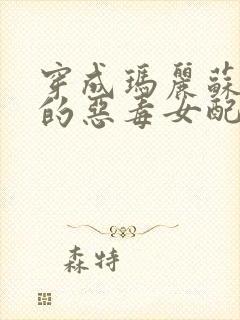 穿成瑪麗蘇
的惡毒女配
森特